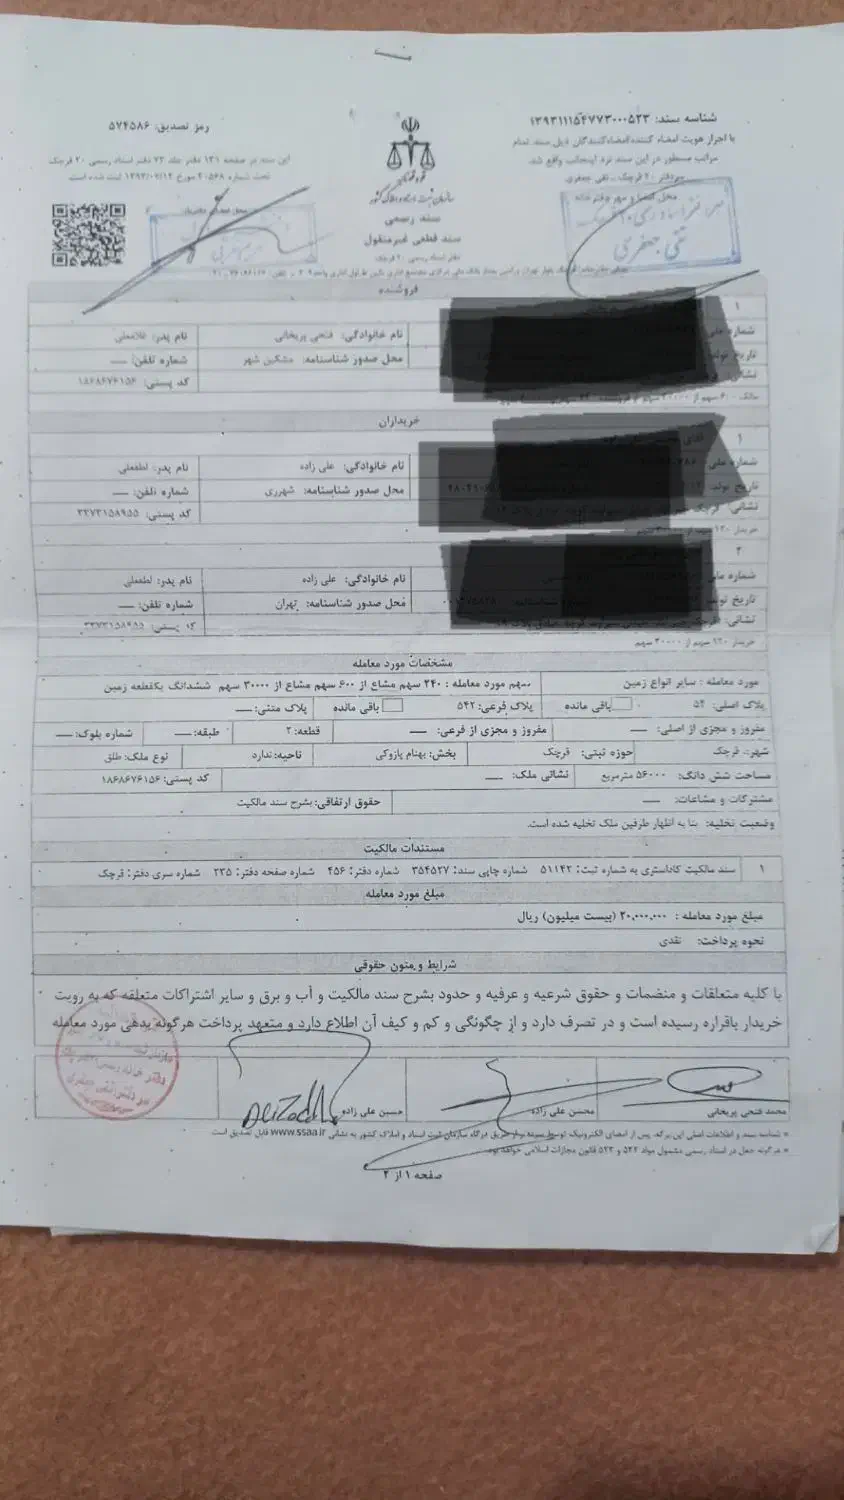 شناسه سند: ۱۳۹۳۱۱۱۵۴۷۷۳۰۰۰۵۲۳
رمز تصدیق: ۵۷۴۵۸۶
با احراز هویت امضاء کننده/امضاءکنندگان ذیل سند تمام
مراتب مسطور در این سند نزد اینجانب واقع شد.
سردفتر ۲۰ قرچک - تقی جعفری
محل امضا و مهر دفترخانه
این سند در صفحه ۱۳۱ دفتر جلد ۷۳ دفتر اسناد رسمی ۲۰ قرچک
ثبت شده است
قوه قضائیه
سازمان ثبت اسناد و املاک کشور
سند رسمی
سند قطعی غیرمنقول
دفتر اسناد رسمی ۲۰ قرچک
تقی جعفری
فروشنده
۱
شماره ملی
نام خانوادگی: فتحی پریخانی
نام پدر: غلامعلی
تاریخ تولد
محل صدور شناسنامه: مشکین شهر
شماره تلفن: —
نشانی
کد پستی: ۱۸۶۸۶۷۶۱۵۶
خریداران
۱ آقای
شماره ملی
نام خانوادگی: علی زاده
نام پدر: لطفعلی
تاریخ تولد
محل صدور شناسنامه: شهرری
شماره تلفن: —
نشانی: قرچک
کد پستی: ۳۳۷۳۱۵۸۹۵۵
خریدار ۱۲۰ سهم از ۳۰۰۰۰ سهم
۲
شماره ملی
نام خانوادگی: علی زاده
نام پدر: لطفعلی
تاریخ تولد
محل صدور شناسنامه: تهران
شماره تلفن: —
نشانی: قرچک
کد پستی: ۳۳۷۳۱۵۸۹۵۵
خریدار ۱۲۰ سهم از ۳۰۰۰۰ سهم
مشخصات مورد معامله
مورد معامله : سایر انواع زمین
سهم مورد معامله : ۲۴۰ سهم مشاع از ۶۰۰ سهم مشاع از ۳۰۰۰۰ سهم ششدانگ یکقطعه زمین
پلاک اصلی: ۵۴ باقی مانده پلاک فرعی: ۵۴۲ باقی مانده پلاک متنی: —
مفروز و مجزی از اصلی: — مفروز و مجزی از فرعی: — قطعه: ۲ طبقه: — شماره بلوک: —
شهر: قرچک حوزه ثبتی: قرچک بخش: بهنام پازوکی ناحیه: ندارد نوع ملک: طلق
مساحت شش دانگ: ۵۶۰۰۰ مترمربع نشانی ملک: — کد پستی: ۱۸۶۸۶۷۶۱۵۶
مشترکات و مشاعات: — حقوق ارتفاقی: بشرح سند مالکیت
وضعیت تخلیه: بنا به اظهار طرفین ملک تخلیه شده است.
مستندات مالکیت
۱ سند مالکیت کاداستری به شماره ثبت: ۵۱۱۴۲ شماره چاپی سند: ۳۵۴۵۲۷ شماره دفتر: ۴۵۶ شماره صفحه دفتر: ۲۳۵ شماره سری دفتر: قرچک
مبلغ مورد معامله
مبلغ مورد معامله : ۲۰,۰۰۰,۰۰۰ (بیست میلیون) ریال
نحوه پرداخت: نقدی
شرایط و متون حقوقی
با کلیه متعلقات و منضمات و حقوق شرعیه و عرفیه و حدود بشرح سند مالکیت و آب و برق و سایر اشتراکات متعلقه که به رویت
خریدار باقراره رسیده است و در تصرف دارد و از چگونگی و کم و کیف آن اطلاع دارد و متعهد پرداخت هرگونه بدهی مورد معامله
محمد فتحی پریخانی
محسن علی زاده
حسین علی زاده
Alizadh
* شناسه سند و اطلاعات اصلی این برگه، پس از امضای الکترونیک توسط سردفتر از طریق درگاه سازمان ثبت اسناد و املاک کشور به نشانی www.ssaa.ir قابل تصدیق است
* هرگونه جعل در اسناد رسمی مشمول مواد ۵۳۲ و ۵۲۳ قانون مجازات اسلامی خواهد بود.
صفحه ۱ از ۲